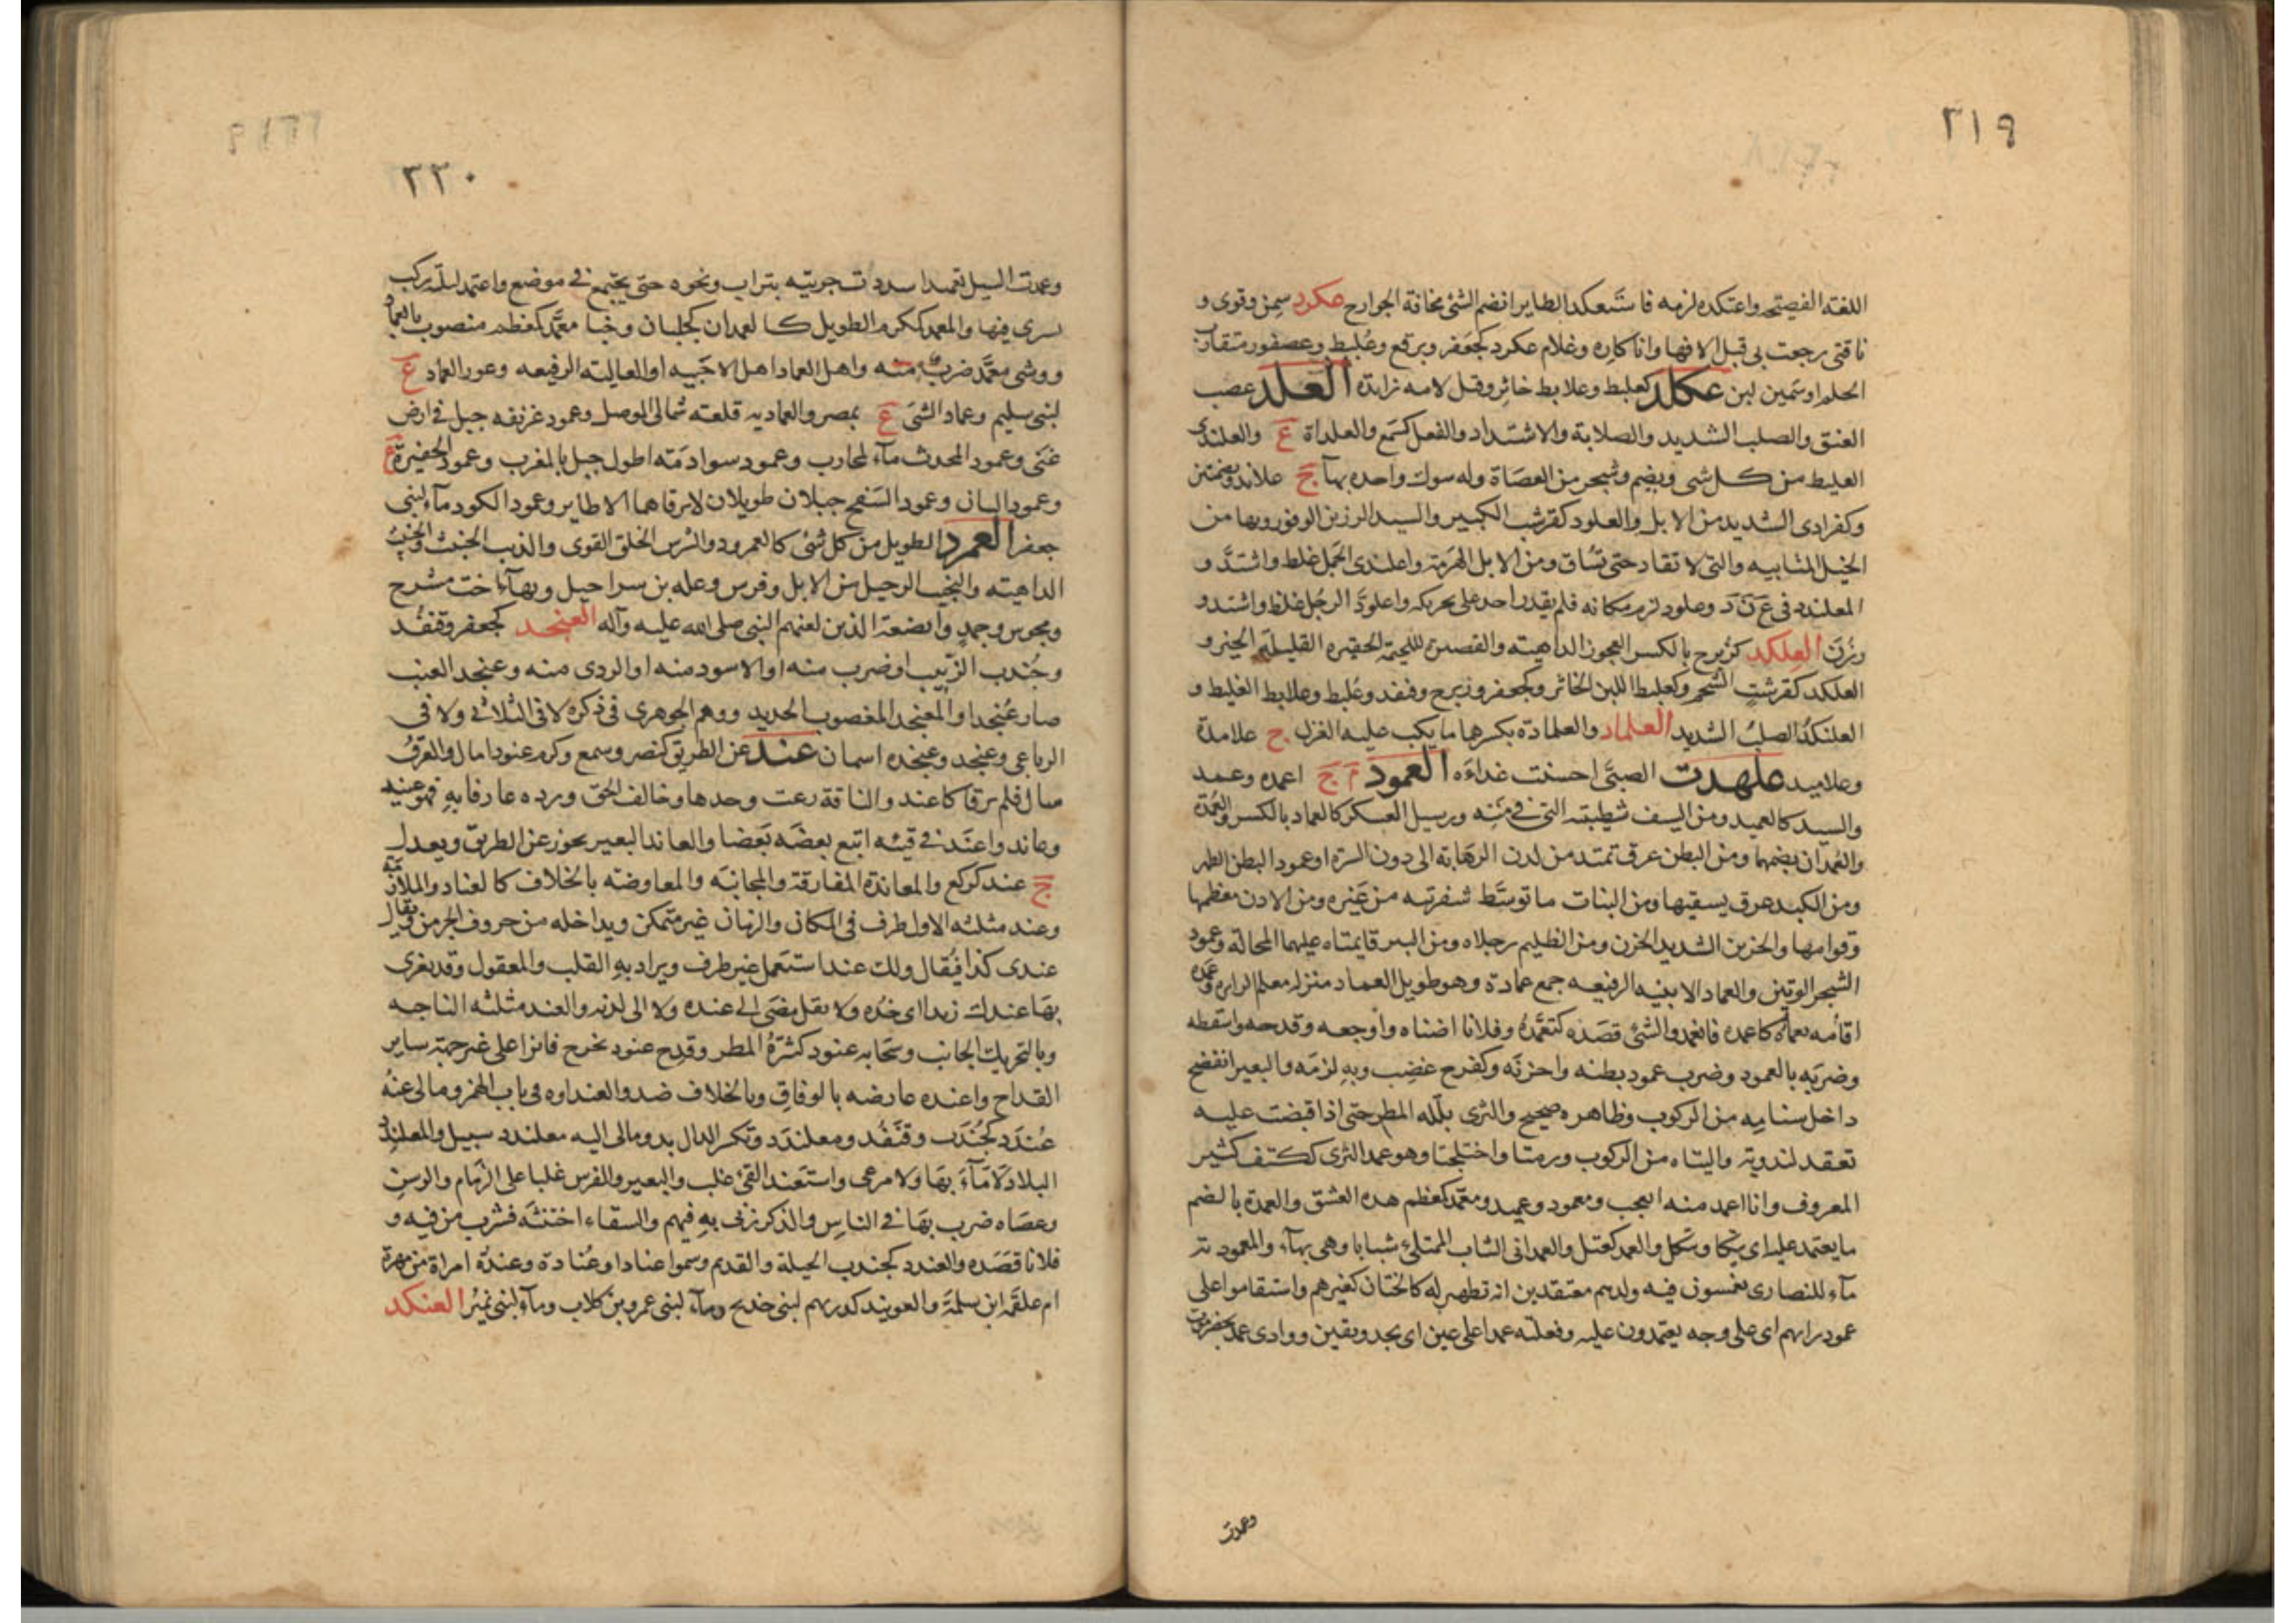 ٢١٩
اللغة الفصيحة واعتكده لزمه فاستعكد الطاير انضم الشئ مخافة الجوارح عكود سمن وقوى و
ناقتى رجعت بى قبل الافها وانا كاره وغلام عكرد كجعفر وبرقع وعلبط وعصفور متقارب
الحلم او سمين لبن عكلد كعلبط وعلابط خاثر وقل لامه زايدة العلد عصب
العنق والصلب الشديد والصلابة والاشتداد والفعل كسمع والعلداة ع والعلندى
الغليظ من كل شى ويضم وشجر من العضاة وله شوك واحده بهآ ج علاند وبضمتين
وكفرادى الشديد من الابل والعلود كقرشب الكبير والسيد الرزين الوقور وبها من
الخيل المتابيه والتى لا تقاد حتى تساق ومن الابل الهرمة واعلندى الجمل غلظ واشتد و
المعلندد فى ع ن د وعلود لزم مكانه فلم يقدر احد على تحريكه واعلود الرجل غلظ واشتد و
رزن العلكد كزبرج بالكسر العجوز الداهية والقصيرة اللحيمة الحقيره القليلة الخير و
العلكد كقرشب الشحم وكعلبط اللبن الخاثر وكجعفر وزبرج وقنفد وعلبط وعلابط الغليظ و
العلنكد الصلب الشديد العلماد والعلمادة بكسرهما ما يكب عليه الغزل ج علامدة
وعلاميد علهدت الصبى احسنت غذاءه العمود م ج اعمده وعمد
والسيد كالعميد ومن السيف شطيبته التى فى متنه ورسيل العسكر كالعماد بالكسر والعمدة
والعمدان بضمهما ومن البطن عرق تمتد من لدن الرهابة الى دون السرة او عمود البطن الظهر
ومن الكبد عرق يسقيها ومن البنات ما توسط شفرتيه من غيره ومن الاذن معظمها
وقوامها والحزين الشديد الحزن ومن الظليم رجلاه ومن البير قايمتاه عليهما المحالة وعمود
الشجر الوتين والعماد الابنيه الرفيعه جمع عمادة وهو طويل العماد منزله معلم لزايره وعمده
اقامه بعماد كاعمده فانعمد والشئ قصده كتعمده وفلانا اضناه واوجعه وفدحه واسقطه
وضربه بالعمود وضرب عمود بطنه واحزنه وكفرح غضب وبه لزمه والبعير انفضخ
داخل سنامه من الركوب وظاهره صحيح والثرى بلله المطر حتى اذا قبضت عليه
تعقد لندوته واليتاه من الركوب ورمتا واختلجتا وهو عمد الثرى ككتف كثير
المعروف وانا اعمد منه اعجب ومعمود وعميد ومعمد كمعظم هده العشق والعمدة بالضم
ما يعتمد عليه اى يتكا ويتكل والعمد كعتل والعمدانى الشاب الممتلئ شبابا وهى بهآء والمعمودية
مآء للنصارى يغمسون فيه ولدهم معتقدين انه تطهير له كالختان لغيرهم واستقاموا على
عمود رايهم اى على وجه يعتمدون عليه وفعلته عمدا على عين اى بجد ويقين ووادى عمد بحضرموت
وعمدت
٢٢٠
وعمدت السيل تعميدا سددت جريته بتراب ونحوه حتى يجتمع فى موضع واعتمد ليلته ركب
يسرى فيها والمعمد ككرم الطويل كالعمدان كجلبان وخبا معمد كمعظم منصوب بالعماد
ووشى معمد ضرب منه واهل العماد اهل الاخبيه او العالية الرفيعه وعور العماد ع
لبنى سليم وعماد الشى ع بمصر والعماديه قلعته شمالى الموصل وعمود غريفه جبل فى ارض
غنى وعمود المحدث مآء لمحارب وعمود سوادمة اطول جبل بالمغرب وعمود الحفيرة ع
وعمود البان وعمود السفح جبلان طويلان لا يرقاهما الا طاير وعمود الكود مآء لبنى
جعفر العمرد الطويل من كل شئ كالعمرود والشرس الخلق القوى والذيب الخبيث والخبيث
الداهية والنجيب الرحيل من الابل وفرس وعله بن سراحيل وبهآء اخت مشرح
ومخوس وجمد وابضعة الذين لعنهم النبى صلى الله عليه وآله العنجد كجعفر وقنفد
وجندب الزبيب او ضرب منه او الاسود منه او الردى منه وعنجد العنب
صار عنجدا والمعنجد المغضوب الحديد ووهم الجوهرى فى ذكره لا فى الثلاثى ولا فى
الرباعى وعنجد وعنجده اسمان عند عن الطريق كنصر وسمع وكرم عنودا مال والعرق
سال فلم يرقا كاعند والناقة رعت وحدها وخالف الحق ورده عارفا به فهو عنيد
وعاند واعند فى قيئه اتبع بعضه بعضا والعاند البعير يحوز عن الطريق ويعدل
ج عند كركع والمعاندة المفارقة والمجانبة والمعاوضه بالخلاف كالعناد والملازمة
وعند مثلثه الاول ظرف فى المكان والزمان غير متمكن ويداخله من حروف الجر من ويقال
عندى كذا فيقال ولك عند استعمل غير ظرف ويراد به القلب والمعقول وقد يغرى
بها عندك زيدا اى خذه ولا يقل مضى الى عنده ولا الى لدنه والعند مثلثه الناحيه
وبالتحريك الجانب وسحابه عنود كثيرة المطر وقدح عنود يخرج فائزا على غير جهة ساير
القداح واعنده عارضه بالوفاق وبالخلاف ضد والعنداوه فى باب الهمز ومالى عنه
عندد كجندب وقنفد ومعلندد وتكسر الدال بد ومالى اليه معلندد سبيل والمعلندد
البلاد لا مآء بها ولا مرعى واستعند القئ غلب والبعير والفرس غلبا على الزمام والرسن
وعصاه ضرب بها فى الناس والذكر زنى به فيهم والسقاء اختنثه فشرب من فيه و
فلانا قصده والعندد كجندب الحيلة والقديم وسموا عنادا وعنادة وعندة امراة من مهرة
ام علقمه ابن سلمة والعويند كدريهم لبنى خديج ومآء لبنى عمرو بن كلاب ومآء لبنى نمير العنكد